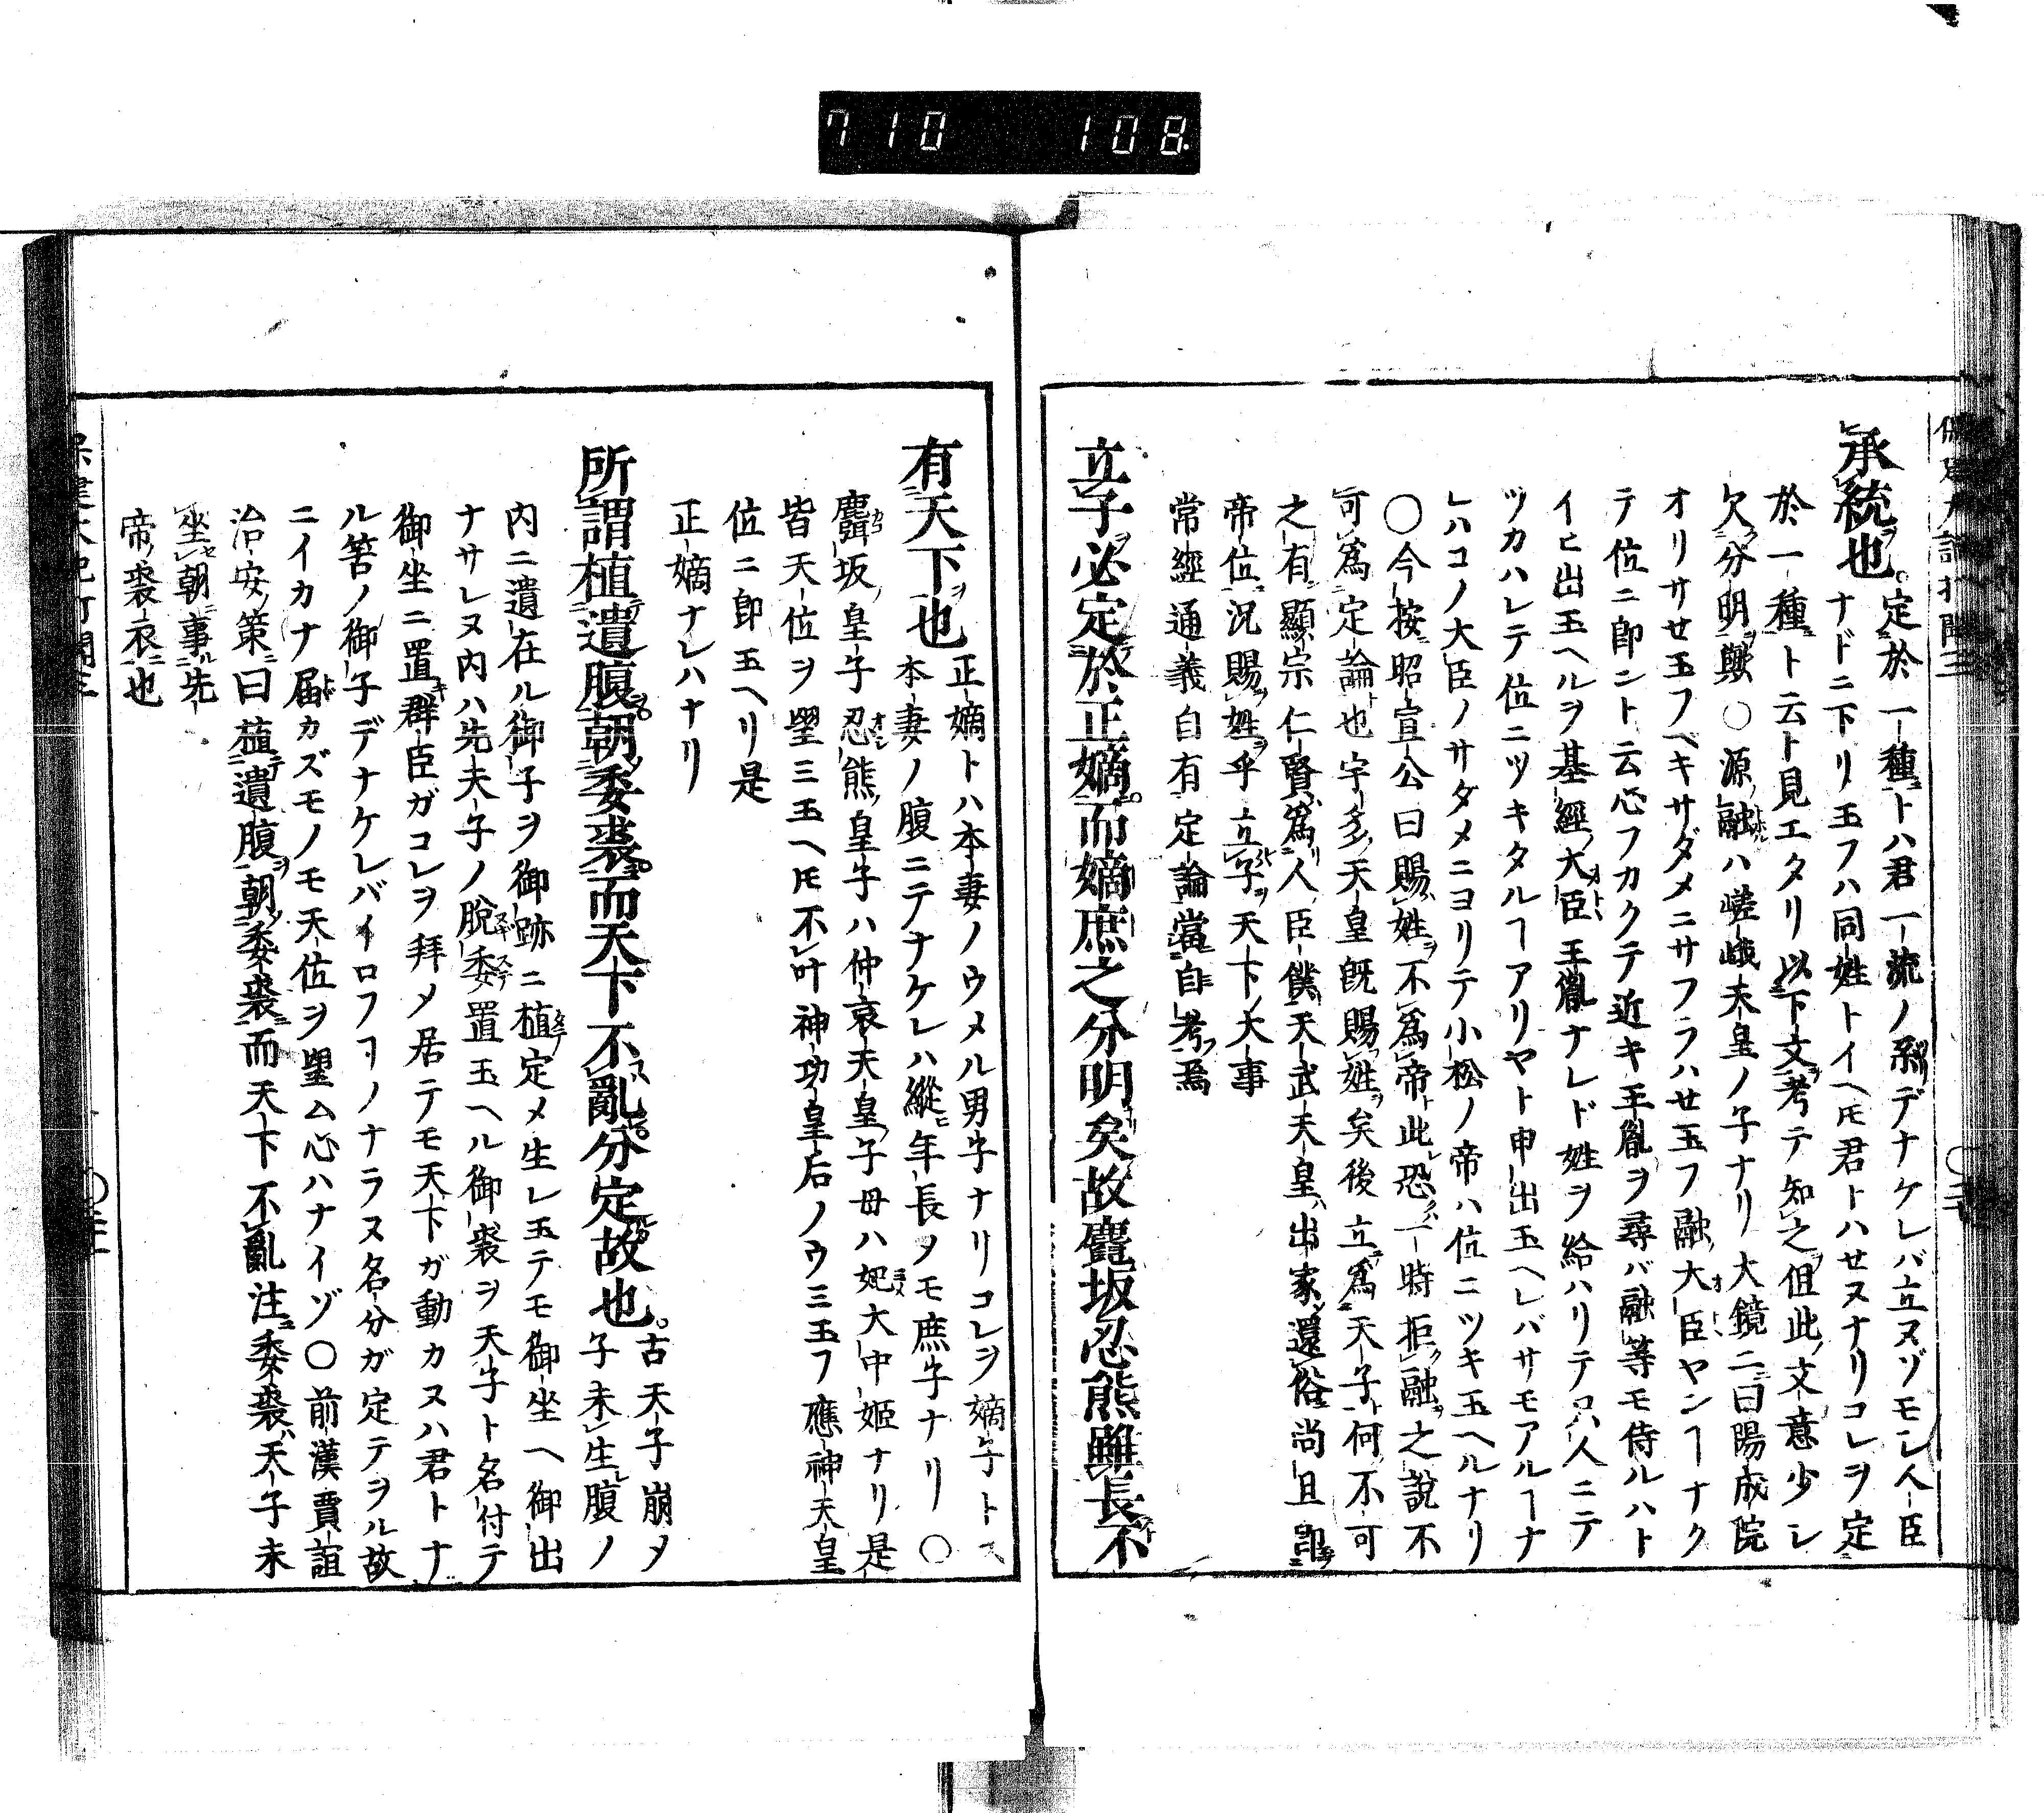 710 108
承統也。定於一種トハ君一流ノ系デナケレバ立ヌゾモシ人臣
ナドニ下リ玉フハ同姓トイヘ𪜈君トハセヌナリコレヲ定
於一種ト云ト見エタリ以下文考テ知之但此文意少シ
欠分明歟〇源融ハ嵯峨天皇ノ子ナリ大鏡ニ曰陽成院
オリサセ玉フベキサダメニサフラハセ玉フ融大臣ヤンヿナク
テ位ニ卽ント云心フカクテ近キ王胤ヲ尋バ融等モ侍ルハト
イヒ出玉ヘルヲ基經大臣王胤ナレド姓ヲ給ハリテ只人ニテ
ツカハレテ位ニツキタルヿアリヤト申出玉ヘレバサモアルヿナ
レハコノ大臣ノサダメニヨリテ小松ノ帝ハ位ニツキ玉ヘルナリ
〇今按昭宣公曰賜姓不爲帝此恐一時拒融之說不
可爲定論也宇多天皇旣賜姓矣後立爲天子何不可
之有顯宗仁賢爲人臣僕天武天皇出家還俗尚且卽
帝位況賜姓乎立子天下大事
常經通義自有定論當自考焉
立子必定於正嫡而嫡庶之分明矣故麛坂忍熊雖長不
有天下也正嫡トハ本妻ノウメル男子ナリコレヲ嫡子トス
本妻ノ腹ニテナケレハ縱年長ノモ庶子ナリ〇
麛坂皇子忍熊皇子ハ仲哀天皇子母ハ妃大中姬ナリ是
皆天位ヲ望ミ玉ヘ𪜈不叶神功皇后ノウミ玉フ應神天皇
位ニ卽玉ヘリ是
正嫡ナレハナリ
所謂植遺腹朝委裘而天下不亂分定故也。古天子崩メ
子未生腹ノ
内ニ遺在ル御子ヲ御跡ニ植定メ生レ玉テモ御坐ヘ御出
ナサレヌ内ハ先夫子ノ脫委置玉ヘル御裘ヲ天子ト名付テ
御坐ニ置群臣ガコレヲ拜メ居テモ天下ガ動カヌハ君トナ
ル筈ノ御子デナケレバイロフヿノナラヌ名分ガ定テヲル故
ニイカナ届カズモノモ天位ヲ望ム心ハナイゾ〇前漢賈誼
治安策曰植遺腹朝委裘而天下不亂注委裘天子未
坐朝事先
帝裘衣也